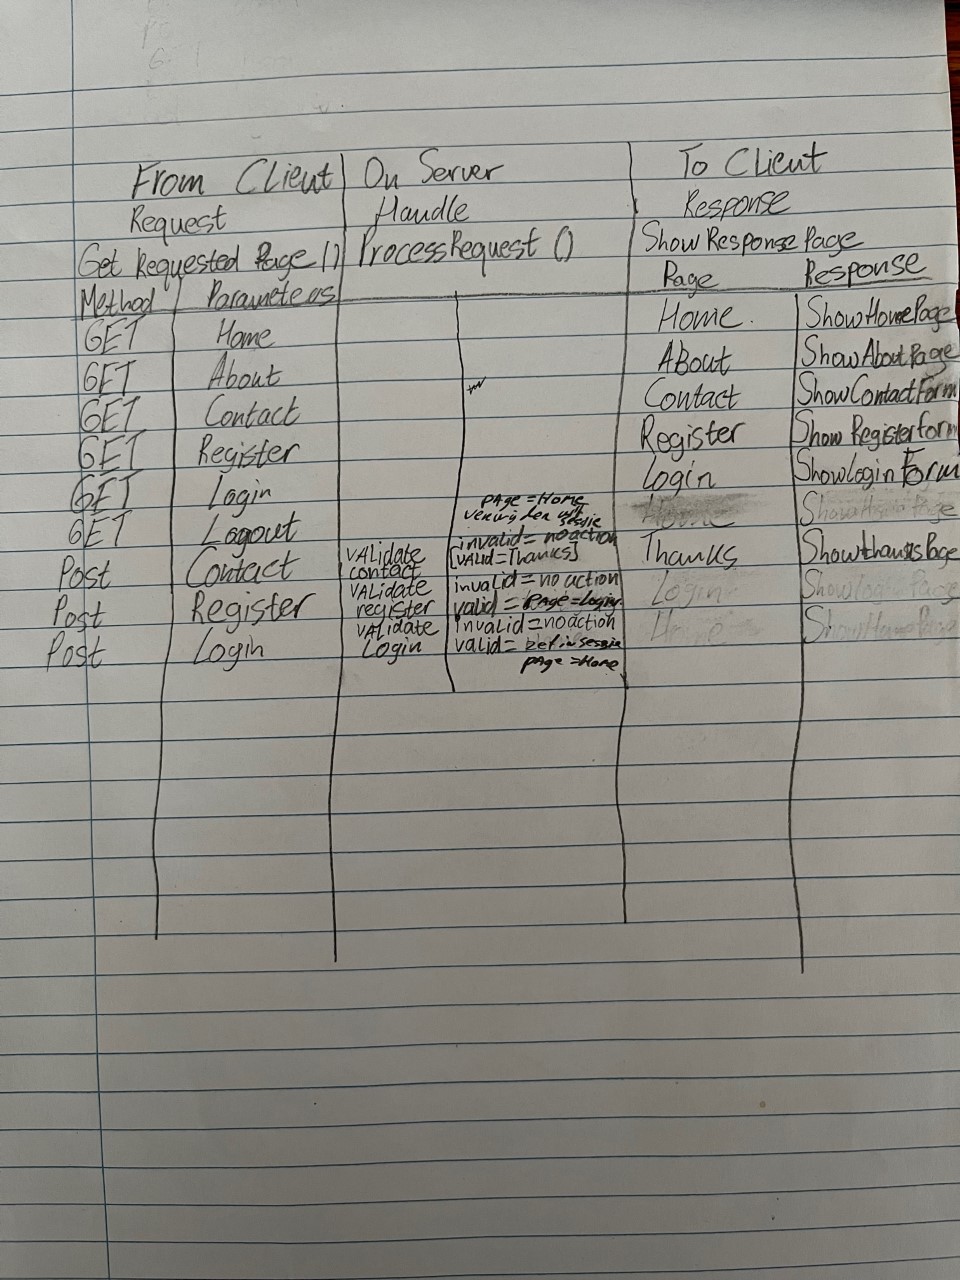 From Client On Server To Client
Request Handle Response
Get Requested Page () ProcessRequest () ShowResponsePage
Method Parameteos Page Response
GET Home Home. ShowHomePage
GET About About ShowAboutPage
GET Contact Contact ShowContactForm
GET Register Register Show Registerform
GET Login Login ShowLogin Form
GET Logout page = Home
Post Contact validate contact invalid = no action [valid = Thanks] Thanks ShowthanksPage
Post Register validate register invalid = no action valid = page = login Login
Post Login validate Login invalid = no action valid = page = Home